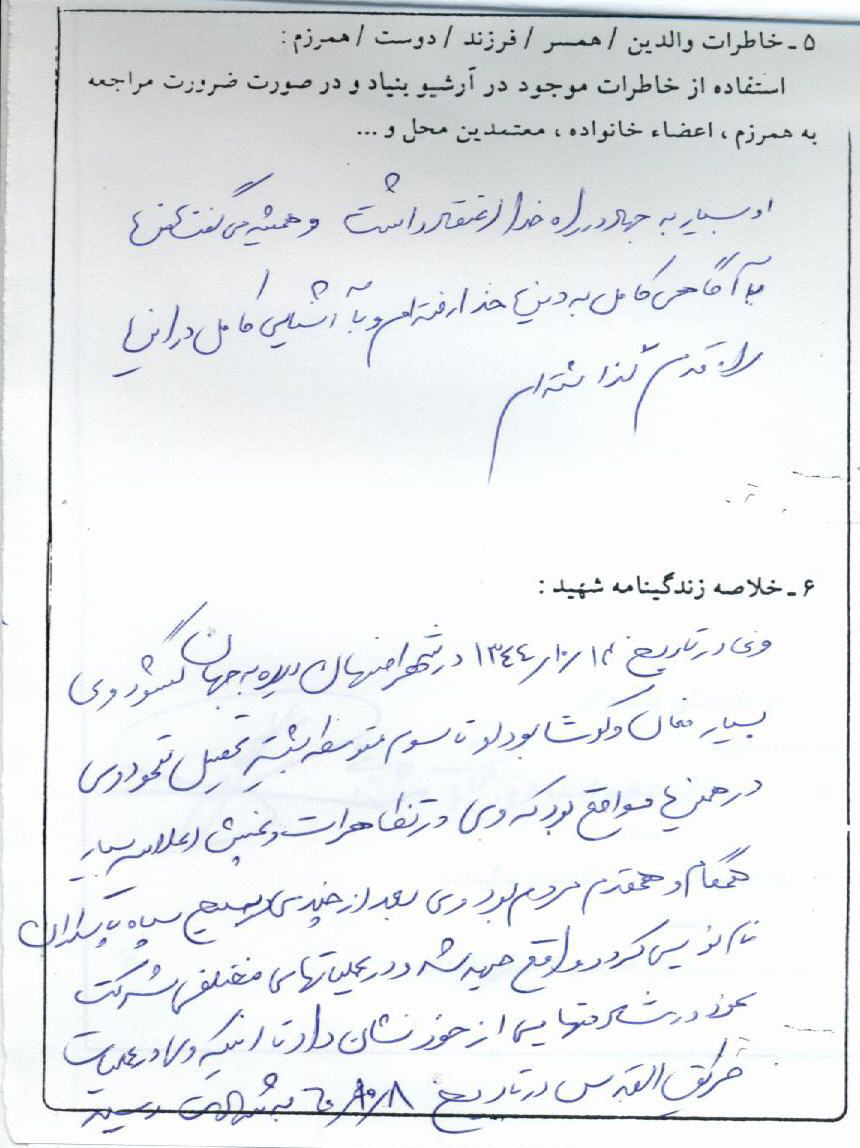 ۵ - خاطرات والدین / همسر / فرزند / دوست / همرزم :
استفاده از خاطرات موجود در آرشیو بنیاد و در صورت ضرورت مراجعه
به همرزم ، اعضاء خانواده ، معتمدین محل و ...
او بسیار به جهاد در راه خدا اعتقاد داشت و همیشه می گفت من
با آگاهی کامل به دین خدا رفته ام و با آشنایی کامل در این
راه قدم گذاشته ام
۶ - خلاصه زندگینامه شهید :
وی در تاریخ ۱۳۴۴/۱۰/۱۲ در شهر اصفهان دیده به جهان گشود وی
بسیار فعال و کوشا بود او تا سوم متوسطه تحصیل نمود وی
در همین مواقع بود که وی در تظاهرات و پخش اعلامیه بسیار
همگام و همقدم مردم بود وی بعد از چندی بسیج سپاه پاسداران
نام نویسی کرد و واقع جبهه شد و در عملیاتهای مختلفی شرکت
نمود و رشادتهایی از خود نشان داد تا اینکه وی در عملیات
طریق القدس در تاریخ ۶۰/۹/۸ به شهادت رسید